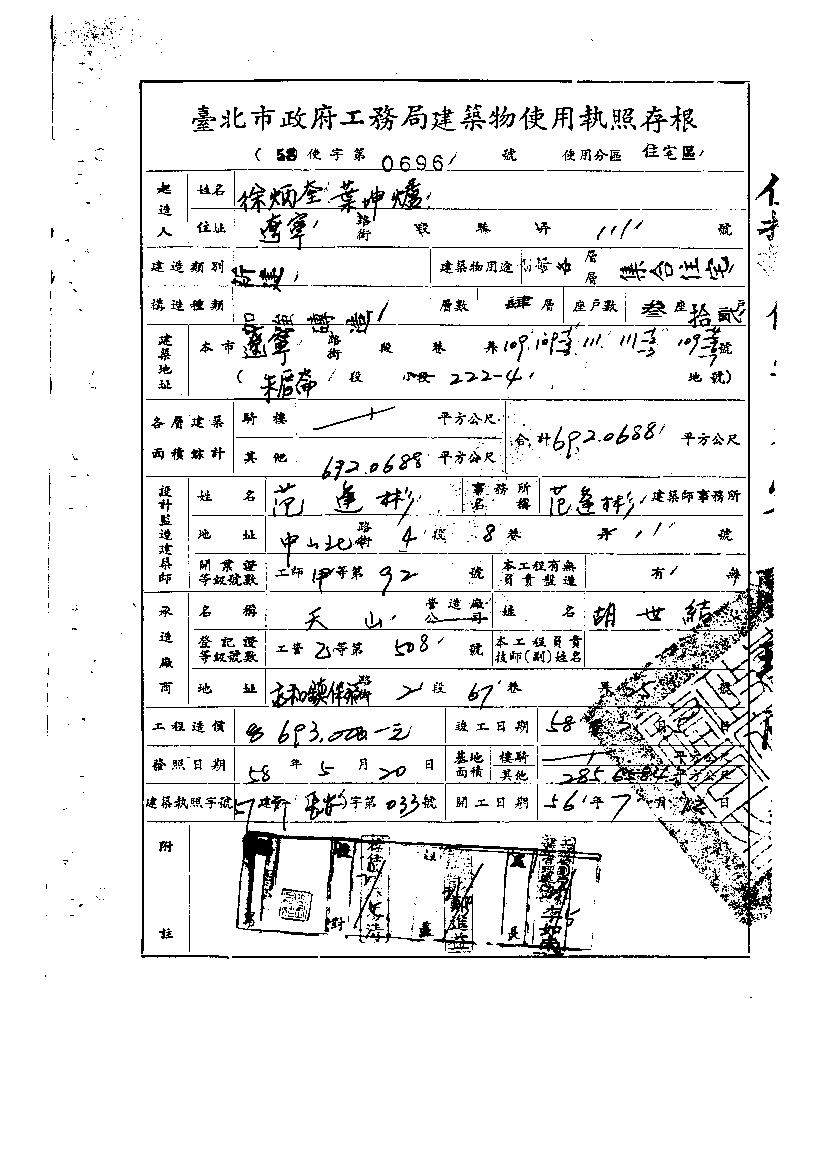 臺北市政府工務局建築物使用執照存根
(58 使字第 0696 號 使用分區 住宅區
起造人 姓名 徐炳奎 葉坤爐
住址 遼寧 路街 段 巷 弄 111 號
建造類別 新建 建築物用途 層層 集合住宅
構造種類 加強磚造 層數 肆層 座戶數 叁座 拾貳戶
建築地址 本市 遼寧 路街 段 巷 弄 109. 109 111. 111 109 號
( 朱厝崙 段 小段 222-4 地號)
各層建築面積總計 騎樓 平方公尺 合計 692.0688 平方公尺
其他 692.0688 平方公尺
設計監造建築師 姓名 范逢彬 事務所名稱 范逢彬 建築師事務所
地址 中山北 路街 4 段 8 巷 弄 1 號
開業證等級號數 工師 甲 等第 92 號 本工程有無負責監造 有 無
承造廠商 名稱 天山 營造廠公司 姓名 胡世結
登記證等級號數 工營 乙 等第 508 號 本工程負責技師(副)姓名
地址 永和鎮保福 路街 2 段 67 巷 弄 5 號
工程造價 693,000 元 竣工日期 58 年 月 日
發照日期 58 年 5 月 20 日 基地面積 樓騎 平方公尺
其他 285.6584 平方公尺
建築執照字號 57 建 字第 033 號 開工日期 56 年 7 月 日
附註